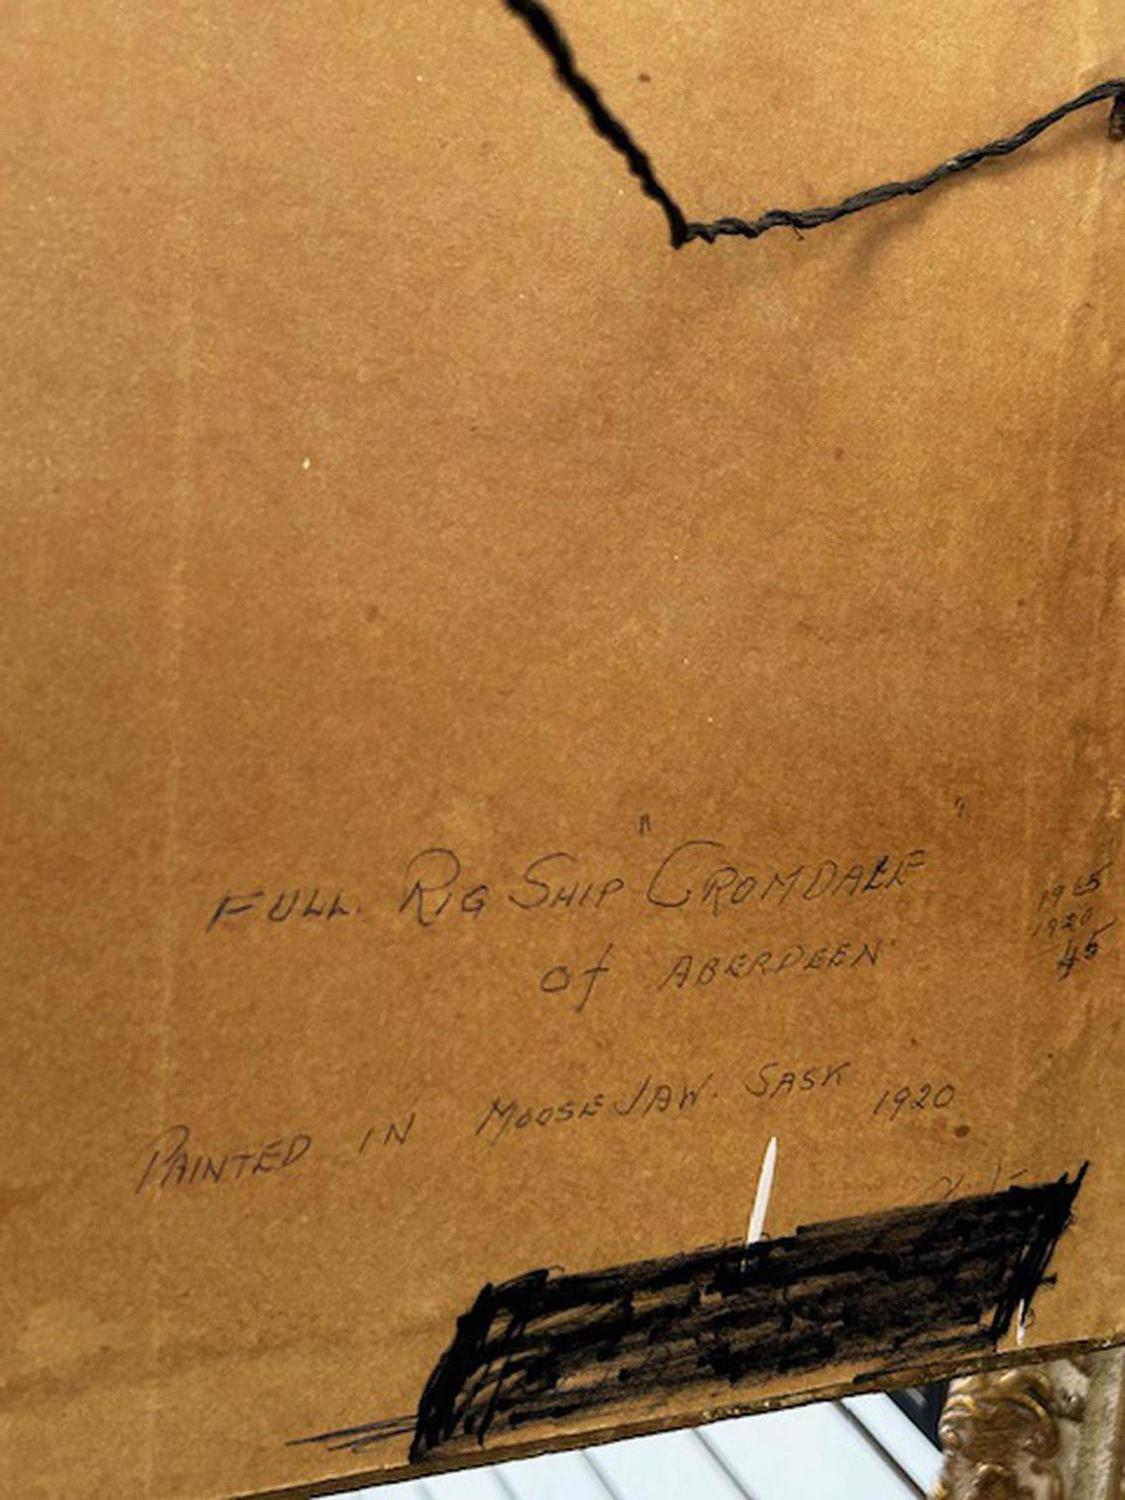 FULL. RIG SHIP "CROMDALE"
of ABERDEEN
PAINTED IN MOOSEJAW. SASK 1920
1965
1920
45